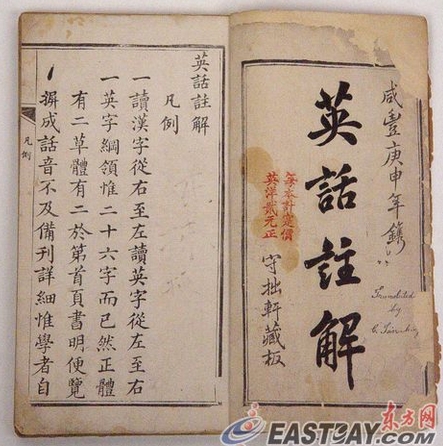 咸豐庚申年鐫
英話註解
Translated
by
每本計定價
英洋貳元正
守拙軒藏板
英話註解
凡例
一讀漢字從右至左讀英字從左至右
一英字綱領惟二十六字而已然正體
有二草體有二於第首頁書明便覽
摒成話音不及備刊詳細惟學者自
凡例
东方网
EASTDAY.COM